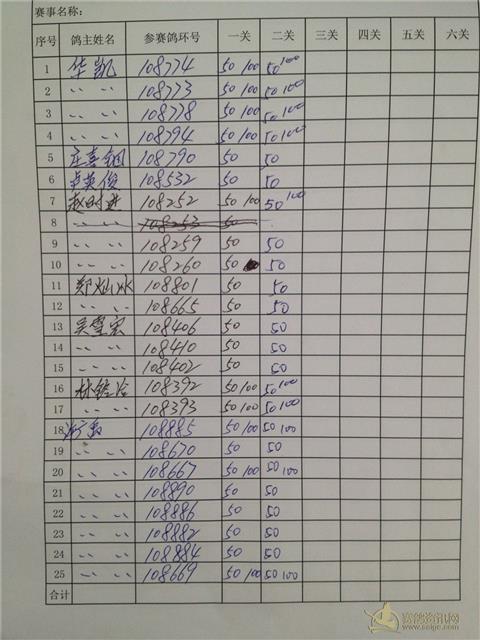 赛事名称:
序号 鸽主姓名 参赛鸽环号 一关 二关 三关 四关 五关 六关
1 华凯 108774 50 100 50 100
2 〃 〃 108773 50 100 50 100
3 〃 〃 108778 50 100 50 100
4 〃 〃 108794 50 100 50 100
5 庄喜钢 108790 50 50
6 卢英俊 108532 50 50
7 赵时进 108252 50 100 50 100
8 〃 〃 108253 50
9 〃 〃 108259 50 50
10 〃 〃 108260 50 50
11 郑灿冰 108801 50 50
12 〃 〃 108665 50 50
13 108406 50 50
14 〃 〃 108410 50 50
15 〃 〃 108402 50 50
16 林 108392 50 100 50 100
17 〃 〃 108393 50 100 50 100
18 108885 50 100 50 100
19 〃 〃 108670 50 50
20 〃 〃 108667 50 100 50 100
21 〃 〃 108890 50 50
22 〃 〃 108886 50 50
23 〃 〃 108882 50 50
24 〃 〃 108884 50 50
25 〃 〃 108669 50 100 50 100
合计
赛鸽资讯网
www.saige.com